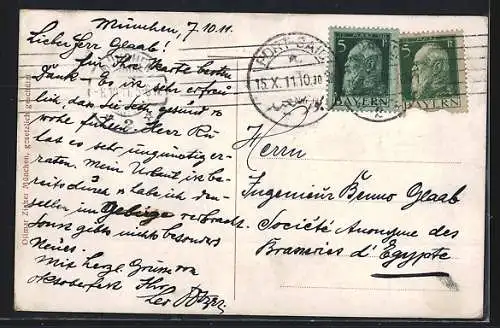 München, 7.10.11.
Lieber Herr Glaab!
für Ihre Karte besten
Dank. Es ist sehr erfreu-
lich, dass Sie sich gesund u.
wohl fühlen. Herr
las es sehr ungünstig er-
raten. Mein Urlaub ist be-
reits durch u. habe ich den-
selben im Gebirge verbracht.
Sonst gibts nichts besonders
Neues.
Mit herzl. Grüssen vom
Oktoberfest Ihr
Leo
Ottmar Zieher München, gesetzlich geschützt
PORT-SAID
15.X.11 10
5 F
BAYERN
5 R
BAYERN
Herrn
Ingenieur Benno Glaab
Société Anonyme des
Brasseries d'Egypte